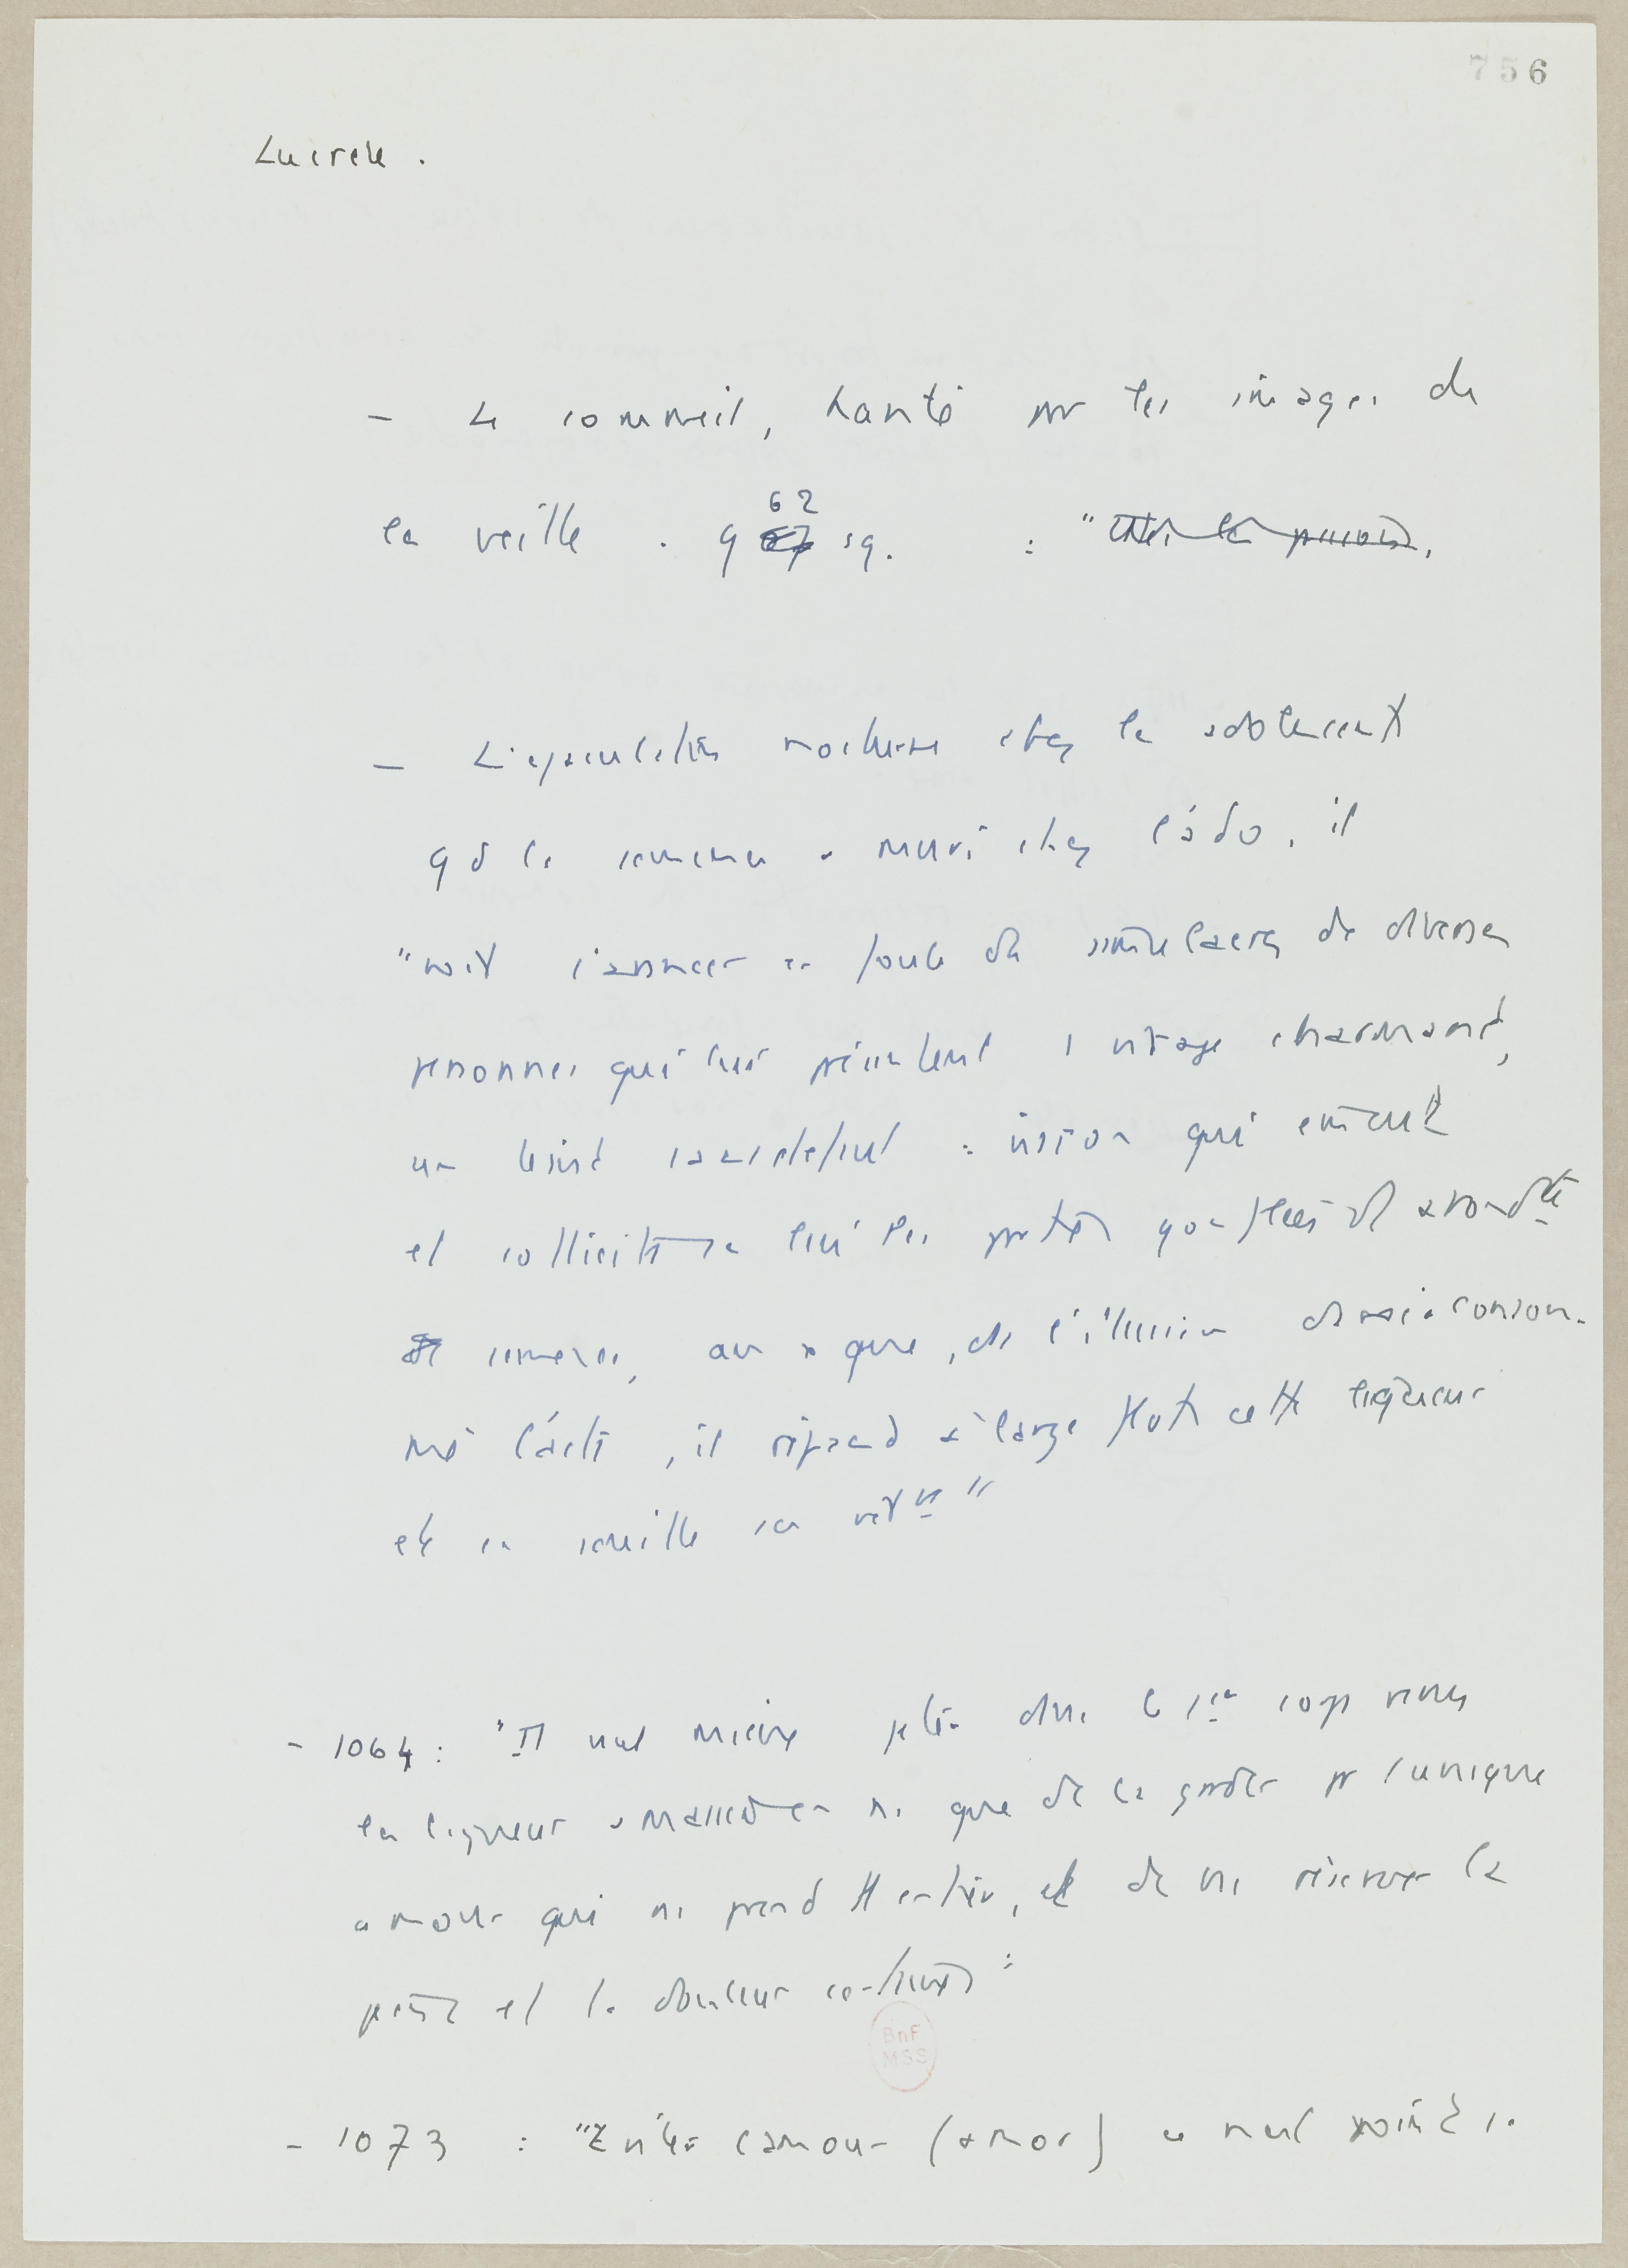 756
Lucrèce.
- Le sommeil, hanté par les images de
la veille. 962 sq. : "
- L'ejaculation nocturne chez les adolescents
qd la semence a muri chez l'ado, il
"voit s'avancer en foule des simulacres de diverses
personnes qui lui présentent 1 visage charmant,
un teint sans défaut : vision qui émeut
et sollicite en lui les parties gonflées d'abondte
semence, au x que, ds l'illusion d'avoir consom-
mé l'acte, il répand à large flots cette liqueur
et en souille sa vêtnt"
- 1064 : "Il vaut mieux jeter dans le 1er corps venu
la liqueur amassée en ns que de la garder pr l'unique
amour qui ns prend tt entier, et de ns réserver la
peine et la douleur certaines"
- 1073 : "Eviter l'amour (amor) ce n'est point se
BnF
MSS